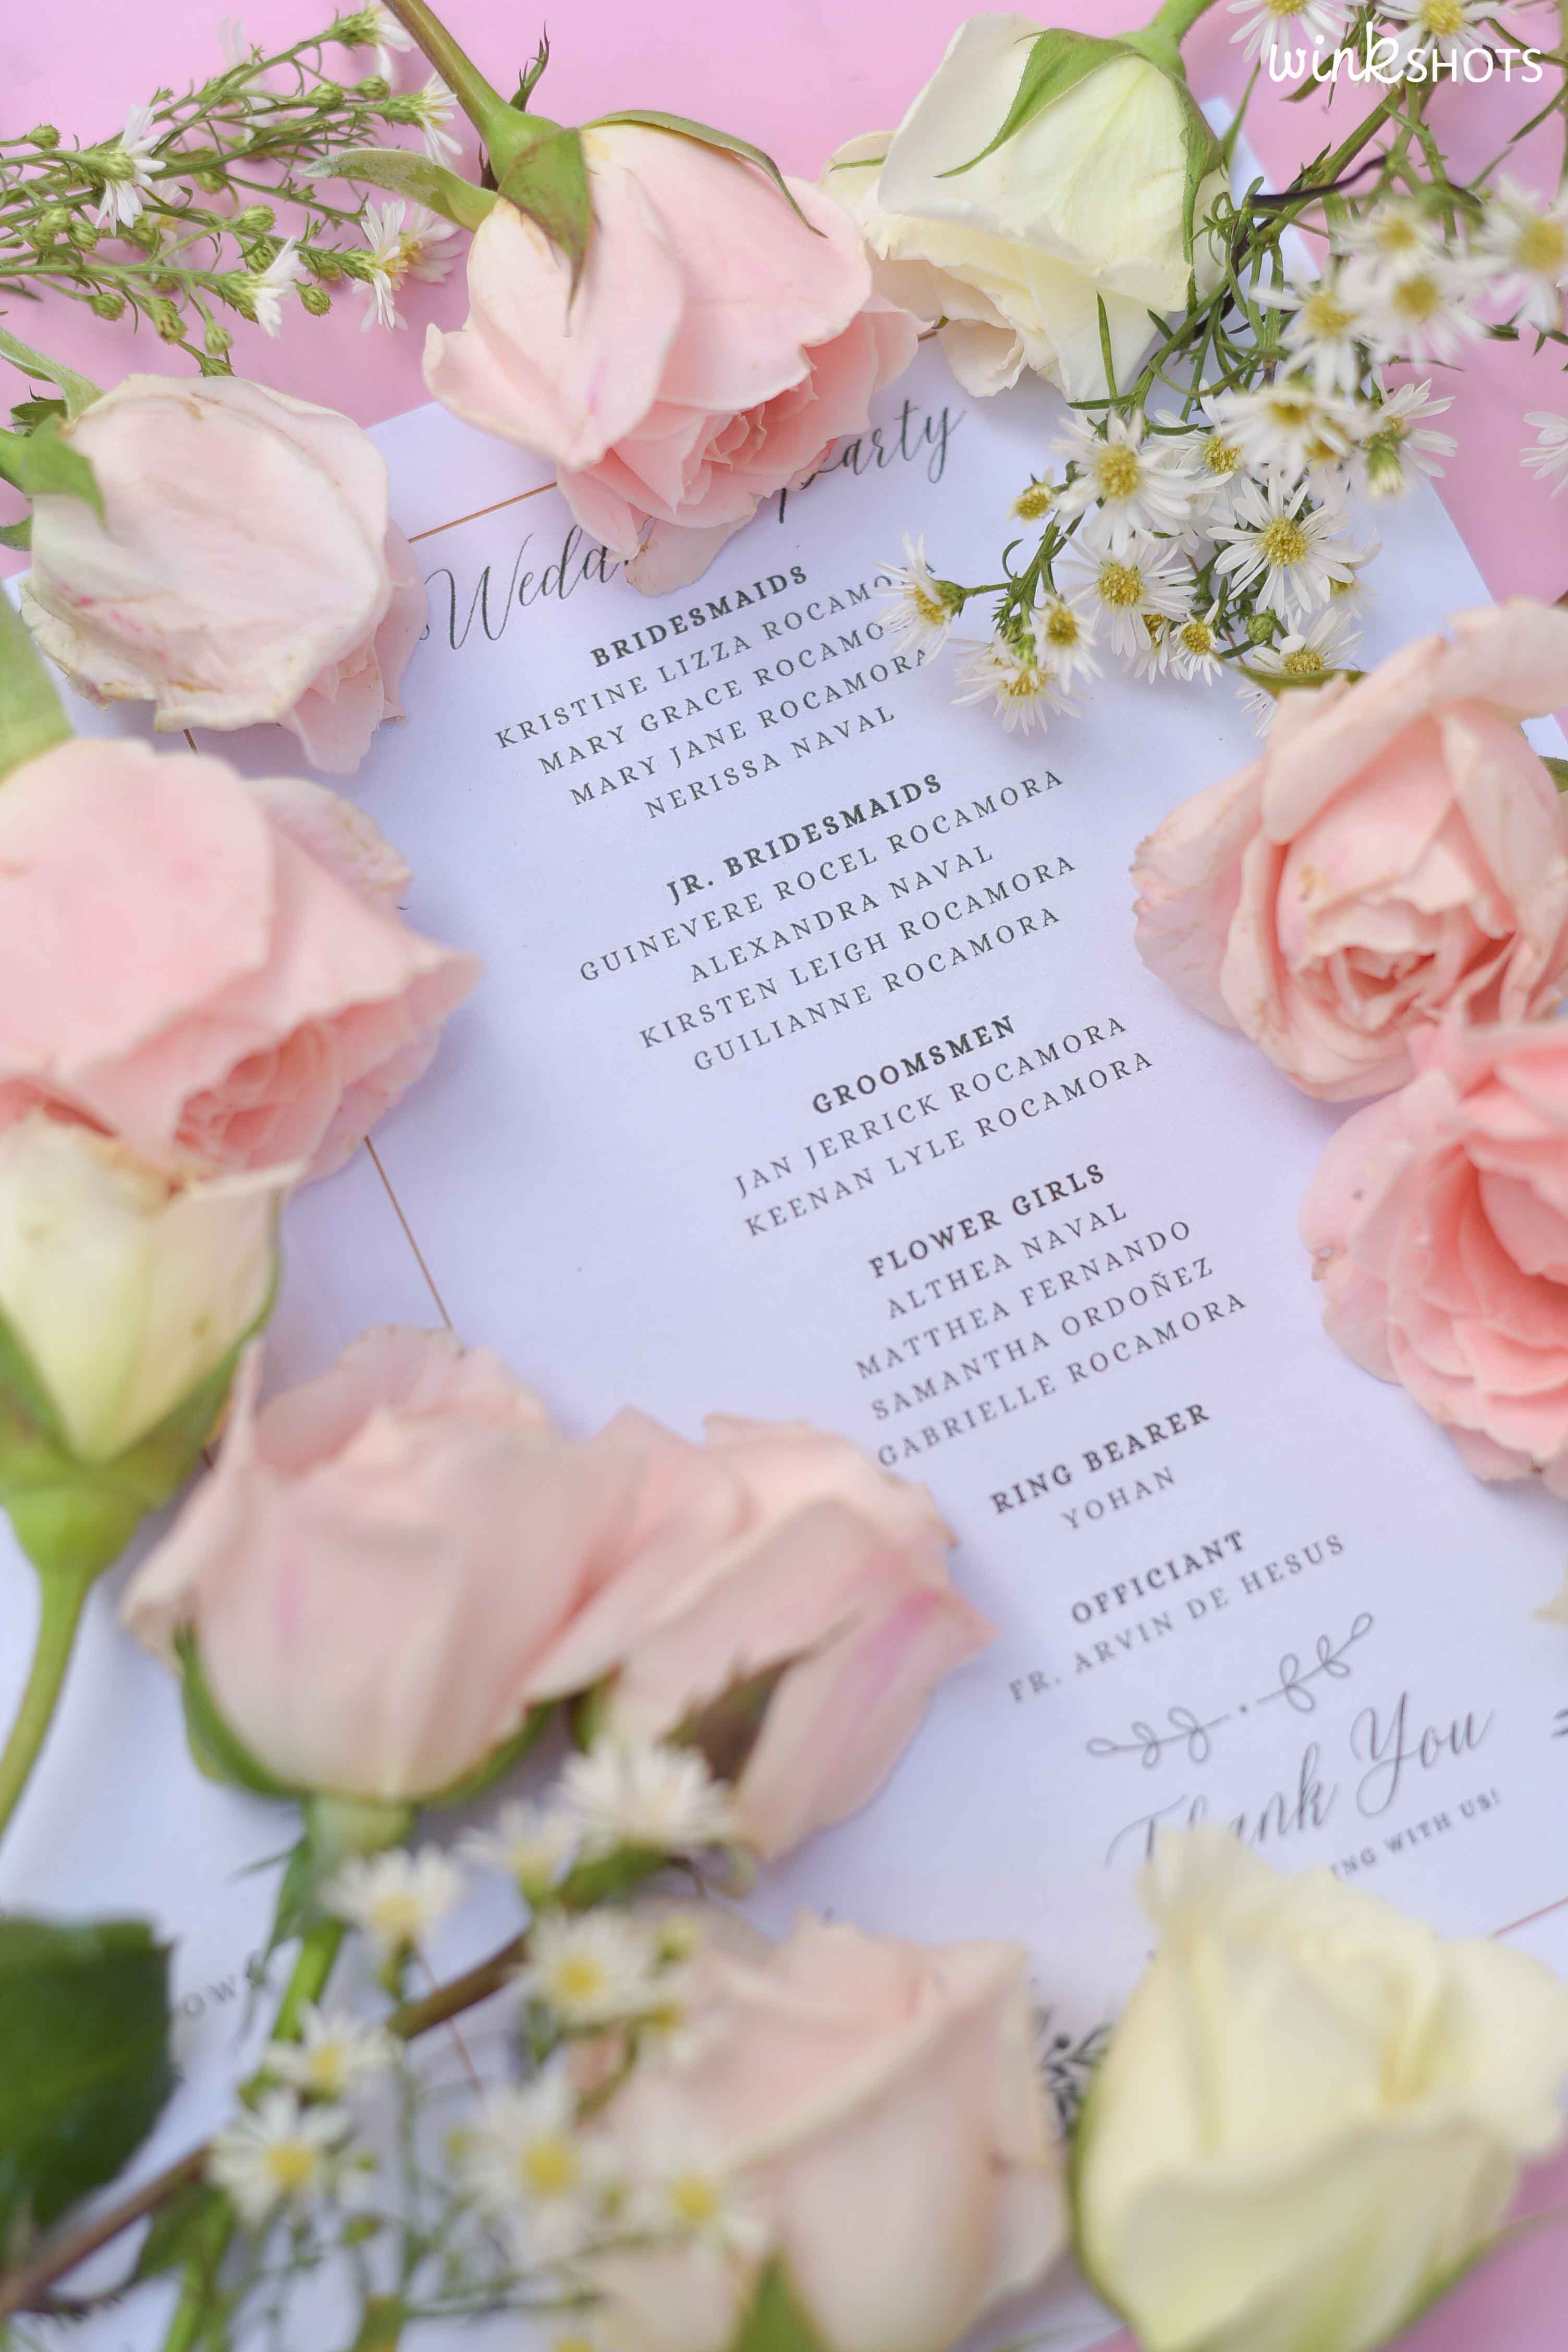 winkSHOTS
Party
BRIDESMAIDS
KRISTINE LIZZA ROCAMORA
MARY GRACE ROCAMO
MARY JANE ROCAMORA
NERISSA NAVAL
JR. BRIDESMAIDS
GUINEVERE ROCEL ROCAMORA
ALEXANDRA NAVAL
KIRSTEN LEIGH ROCAMORA
GUILIANNE ROCAMORA
GROOMSMEN
JAN JERRICK ROCAMORA
KEENAN LYLE ROCAMORA
FLOWER GIRLS
ALTHEA NAVAL
MATTHEA FERNANDO
SAMANTHA ORDOÑEZ
GABRIELLE ROCAMORA
RING BEARER
YOHAN
OFFICIANT
FR. ARVIN DE HESUS
Thank You
WITH US!